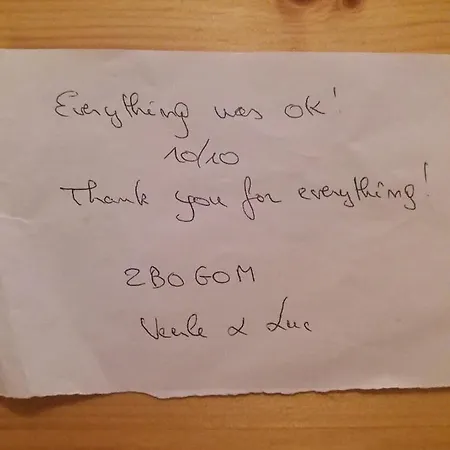 Everything was ok!
10/10
Thank you for everything!
ZBOGOM
Veerle & Luc